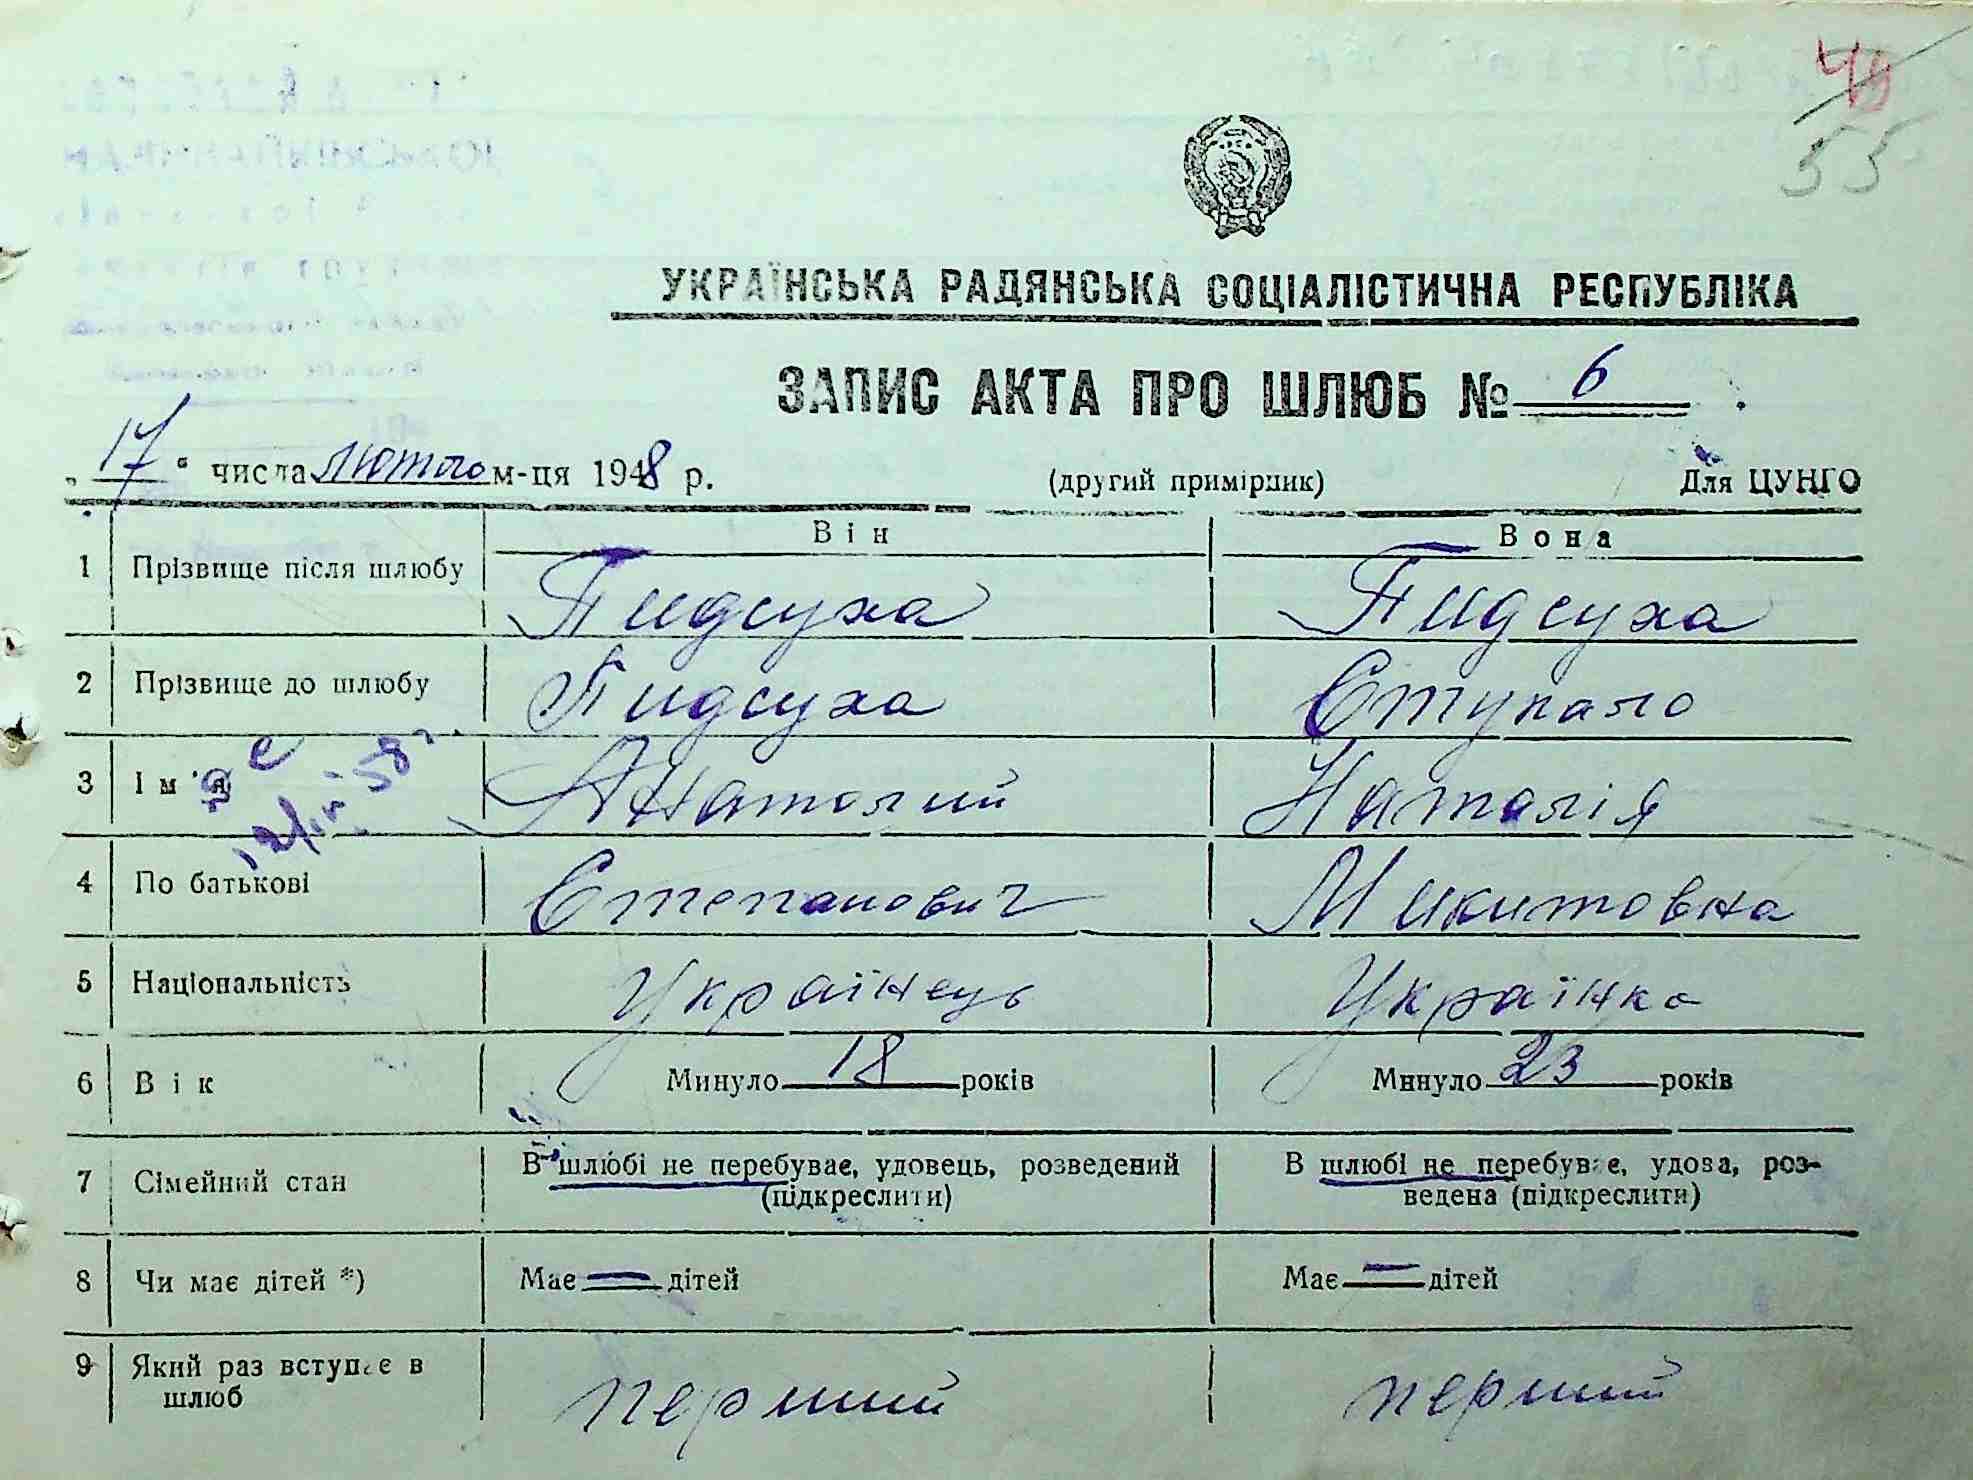 49
55
УКРАЇНСЬКА РАДЯНСЬКА СОЦІАЛІСТИЧНА РЕСПУБЛІКА
ЗАПИС АКТА ПРО ШЛЮБ № 6
„17“ числа лютого м-ця 1948 р. (другий примірник) Для ЦУНГО
Він Вона
1 Прізвище після шлюбу Пидсуха Пидсуха
2 Прізвище до шлюбу Пидсуха Ступало
3 Ім'я Анатолий Наталія
4 По батькові Степанович Микитовна
5 Національність Українець Українка
6 Вік Минуло 18 років Минуло 23 років
7 Сімейний стан В шлюбі не перебуває, удовець, розведений (підкреслити) В шлюбі не перебуває, удова, розведена (підкреслити)
8 Чи має дітей *) Має — дітей Має — дітей
9 Який раз вступає в шлюб перший перший